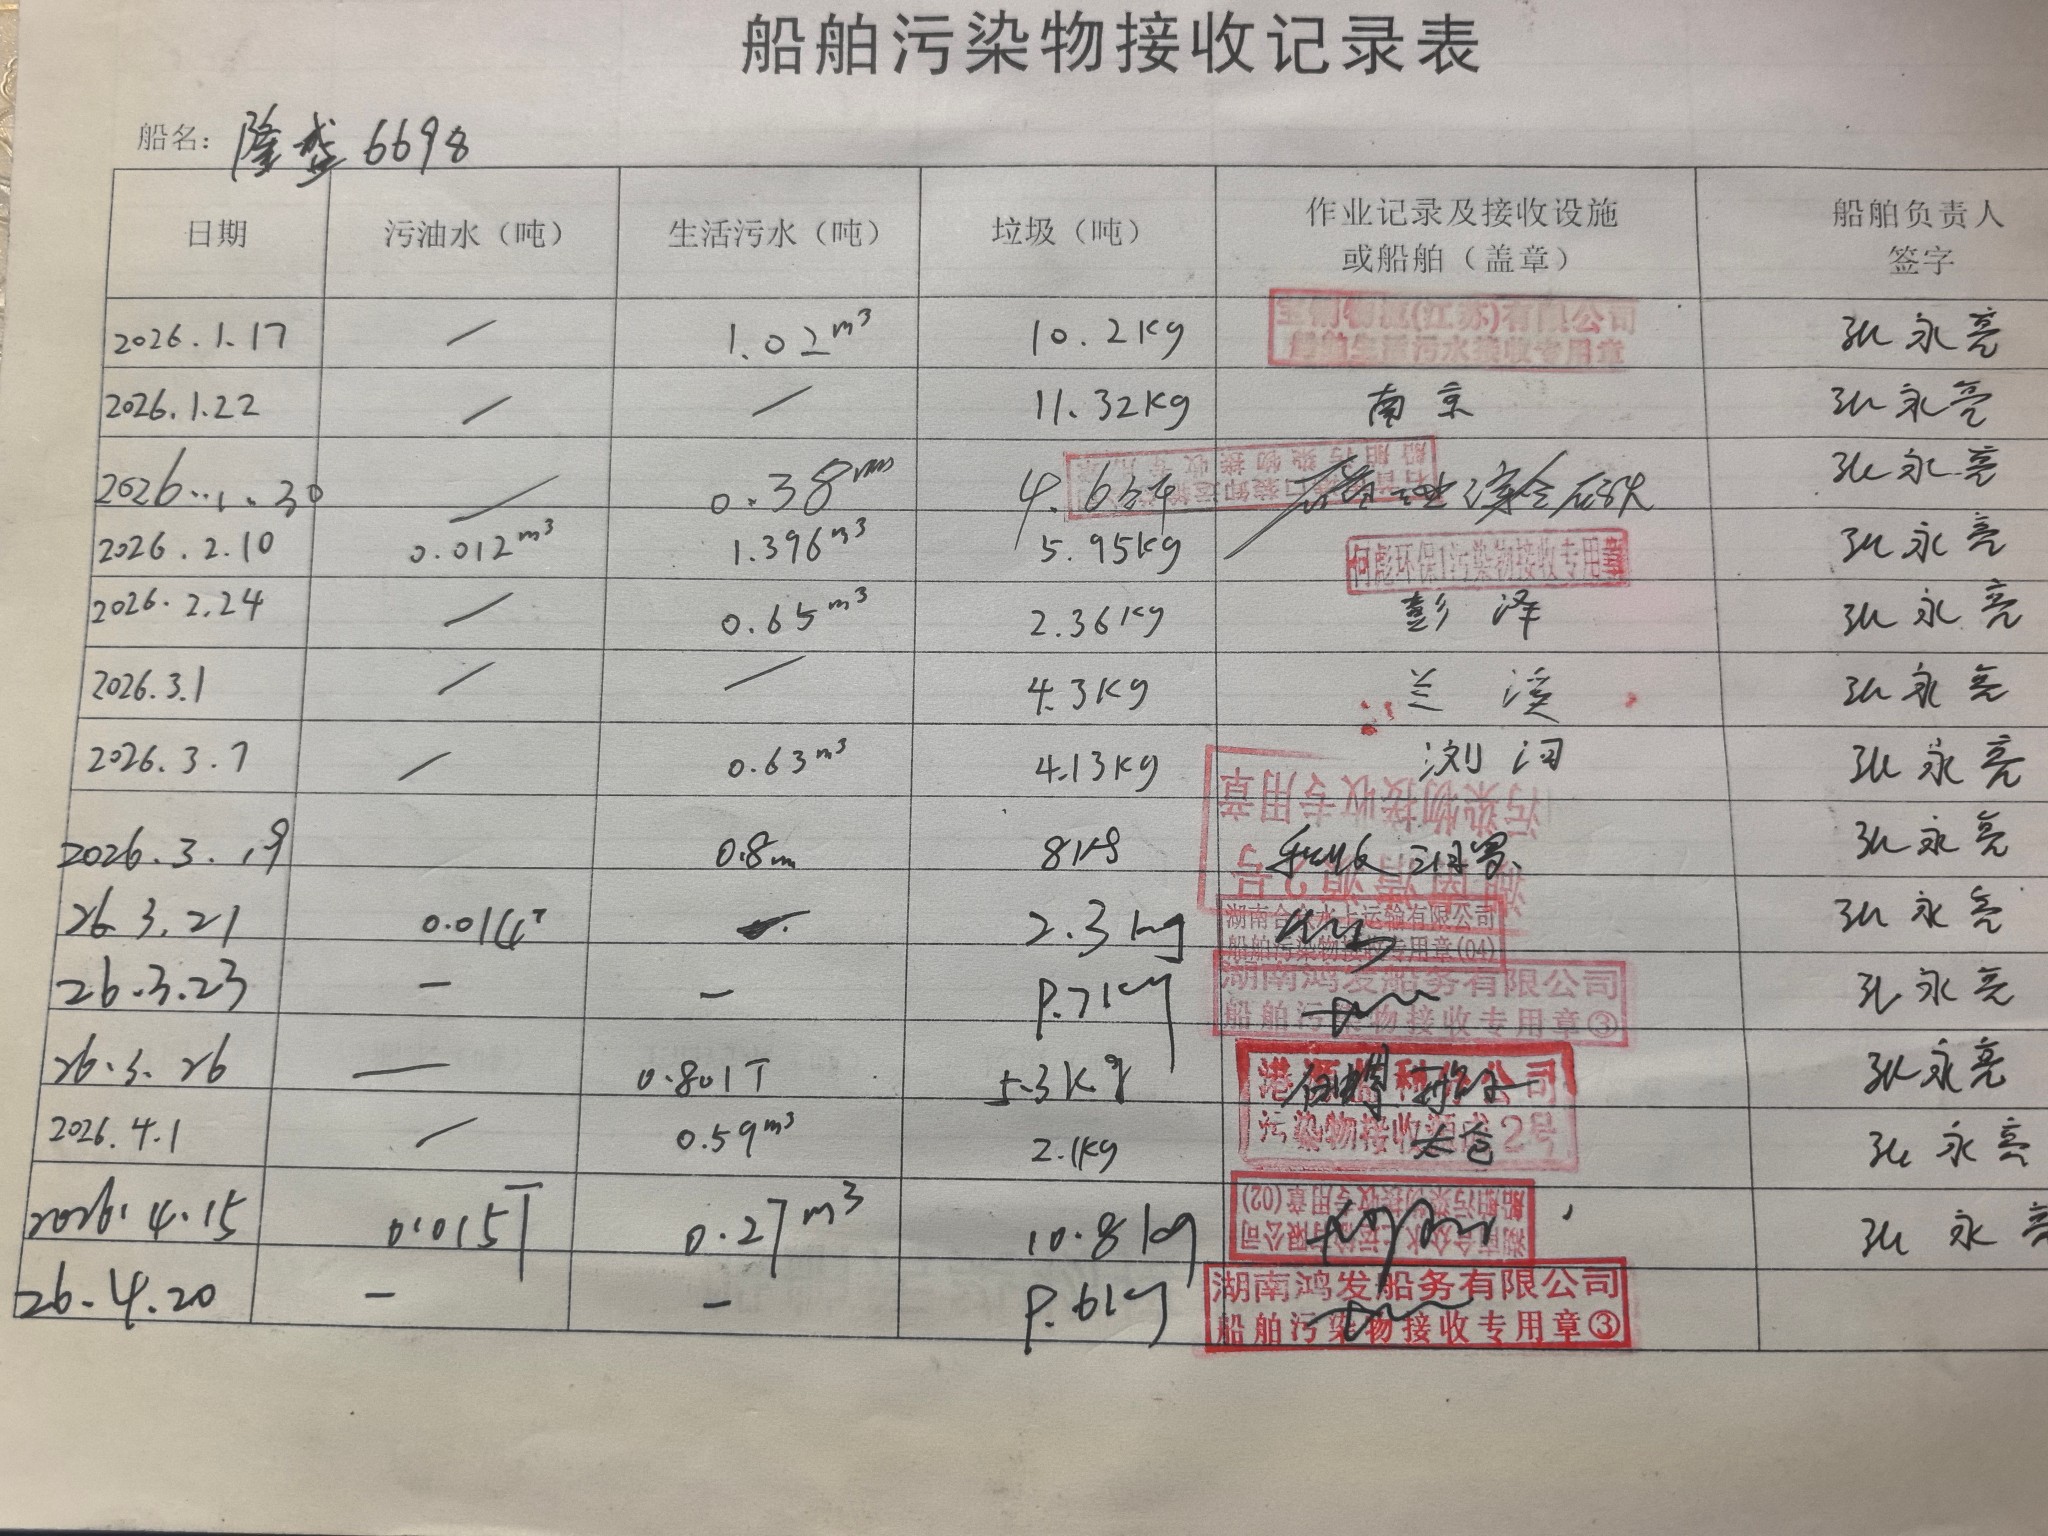 船舶污染物接收记录表
船名: 隆盛 6698
日期 污油水（吨） 生活污水（吨） 垃圾（吨） 作业记录及接收设施 船舶负责人
或船舶（盖章） 签字
2026.1.17 / 1.02m³ 10.2kg 张永亮
物流(江苏)有限公司
船舶生活污水接收专用章
2026.1.22 / / 11.32kg 南京 张永亮
2026.1.30 / 0.38 4.63 张永亮
2026.2.10 0.012m³ 1.396m³ 5.95kg 何彪环保1污染物接收专用章 张永亮
2026.2.24 / 0.65m³ 2.36kg 彭泽 张永亮
2026.3.1 / / 4.3kg 兰溪 张永亮
2026.3.7 / 0.63m³ 4.13kg 浏河 张永亮
污染物接收专用章
2026.3.19 0.8m 8kg 张永亮
26.3.21 0.014T 2.3kg 张永亮
湖南合众水上运输有限公司
船舶污染物接收专用章(04)
26.3.23 - - 张永亮
湖南鸿发船务有限公司
船舶污染物接收专用章③
26.3.26 — 0.801T 5.3kg 张永亮
公司
污染物接收 2号
2026.4.1 / 0.59m³ 2.1kg 太仓 张永亮
2026.4.15 0.015T 0.27m³ 10.8kg 张永亮
船舶污染物接收专用章(02)
湖南合众水上运输有限公司
26.4.20 - -
湖南鸿发船务有限公司
船舶污染物接收专用章③